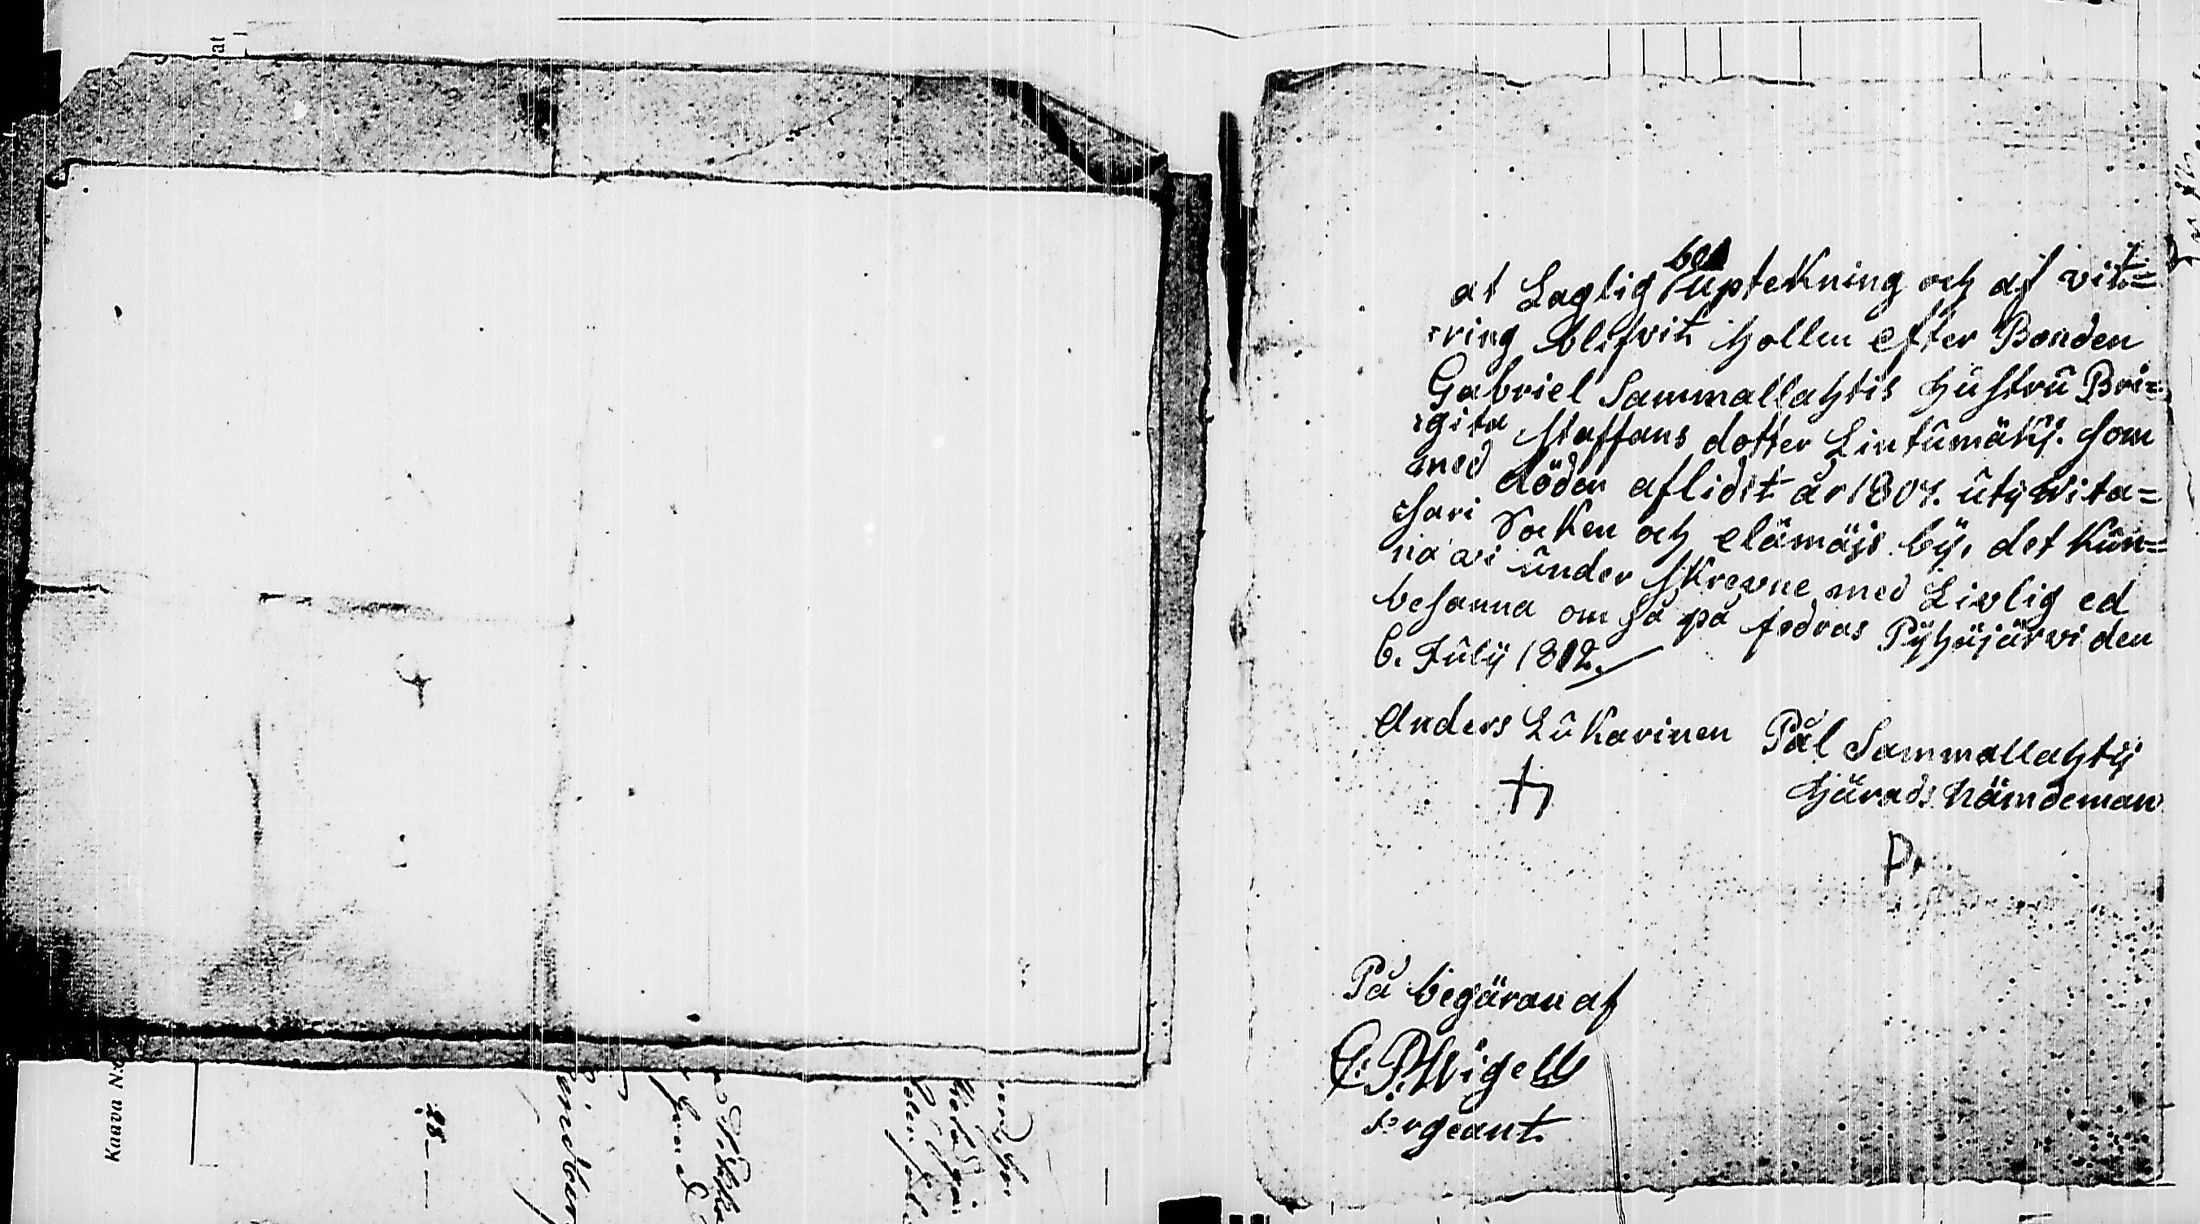 at Laglig bo uptekning och af vit=
=ring blifvit hollen efter Bonden
Gabriel Sammallahtis hustru Bri=
=gita Staffans dotter Lintumäki. som
med döden aflidit år 1807. uty Wita=
sari Socken och elämäjs by, det kun=
na wi under skrevne med Livlig ed
besanna om så på fodras Pyhäjärvi den
6. July 1812.
Anders Lukarinen Pål Sammallahty
Härads Nämdeman
P.
På begäran af
C. P. Wigell
sergeant.
Kaava N:o
28